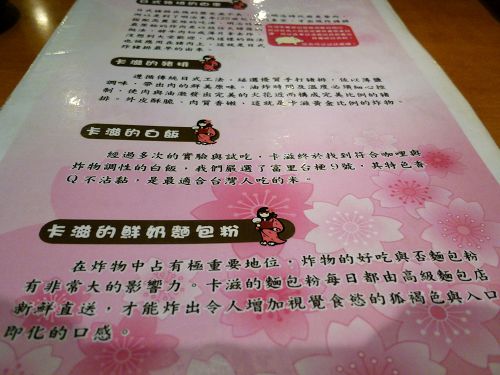 日式豬排的由來
卡滋的豬排
遵循傳統日式工法,經選優質手打豬排,佐以薄鹽
調味,帶出肉的鮮美原味。油炸時間及溫度必須細心控
制,使肉與油激發出完美的火花近而構成完美比例的豬
排。外皮酥脆,肉質香嫩,這就是卡滋黃金比例的炸物。
卡滋的白飯
經過多次的實驗與試吃,卡滋終於找到符合咖哩與
炸物調性的白飯,我們嚴選了富里台梗9號,其特色香
Q不沾黏,是最適合台灣人吃的米。
卡滋的鮮奶麵包粉
在炸物中占有極重要地位,炸物的好吃與否麵包粉
有非常大的影響力。卡滋的麵包粉每日都由高級麵包店
新鮮直送,才能炸出令人增加視覺食慾的狐褐色與入口
即化的口感。